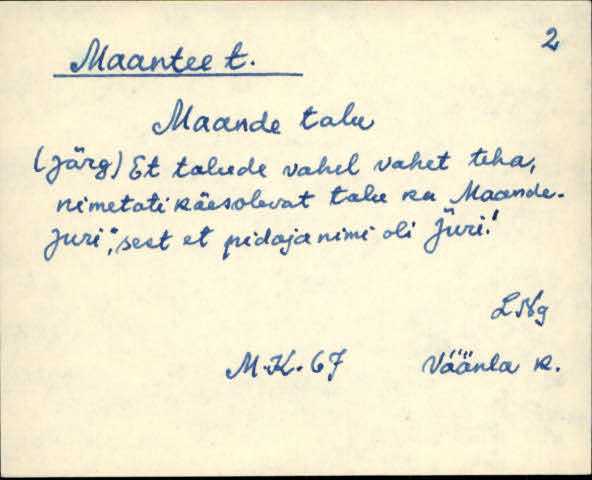 2
Maantee t.
Maande talu
(järg) Et talude vahel vahet teha,
nimetati käesolevat talu ka „Maande-
Juri", sest et pidaja nimi oli Jüri.
LNg
M.K. 67 Väänla k.